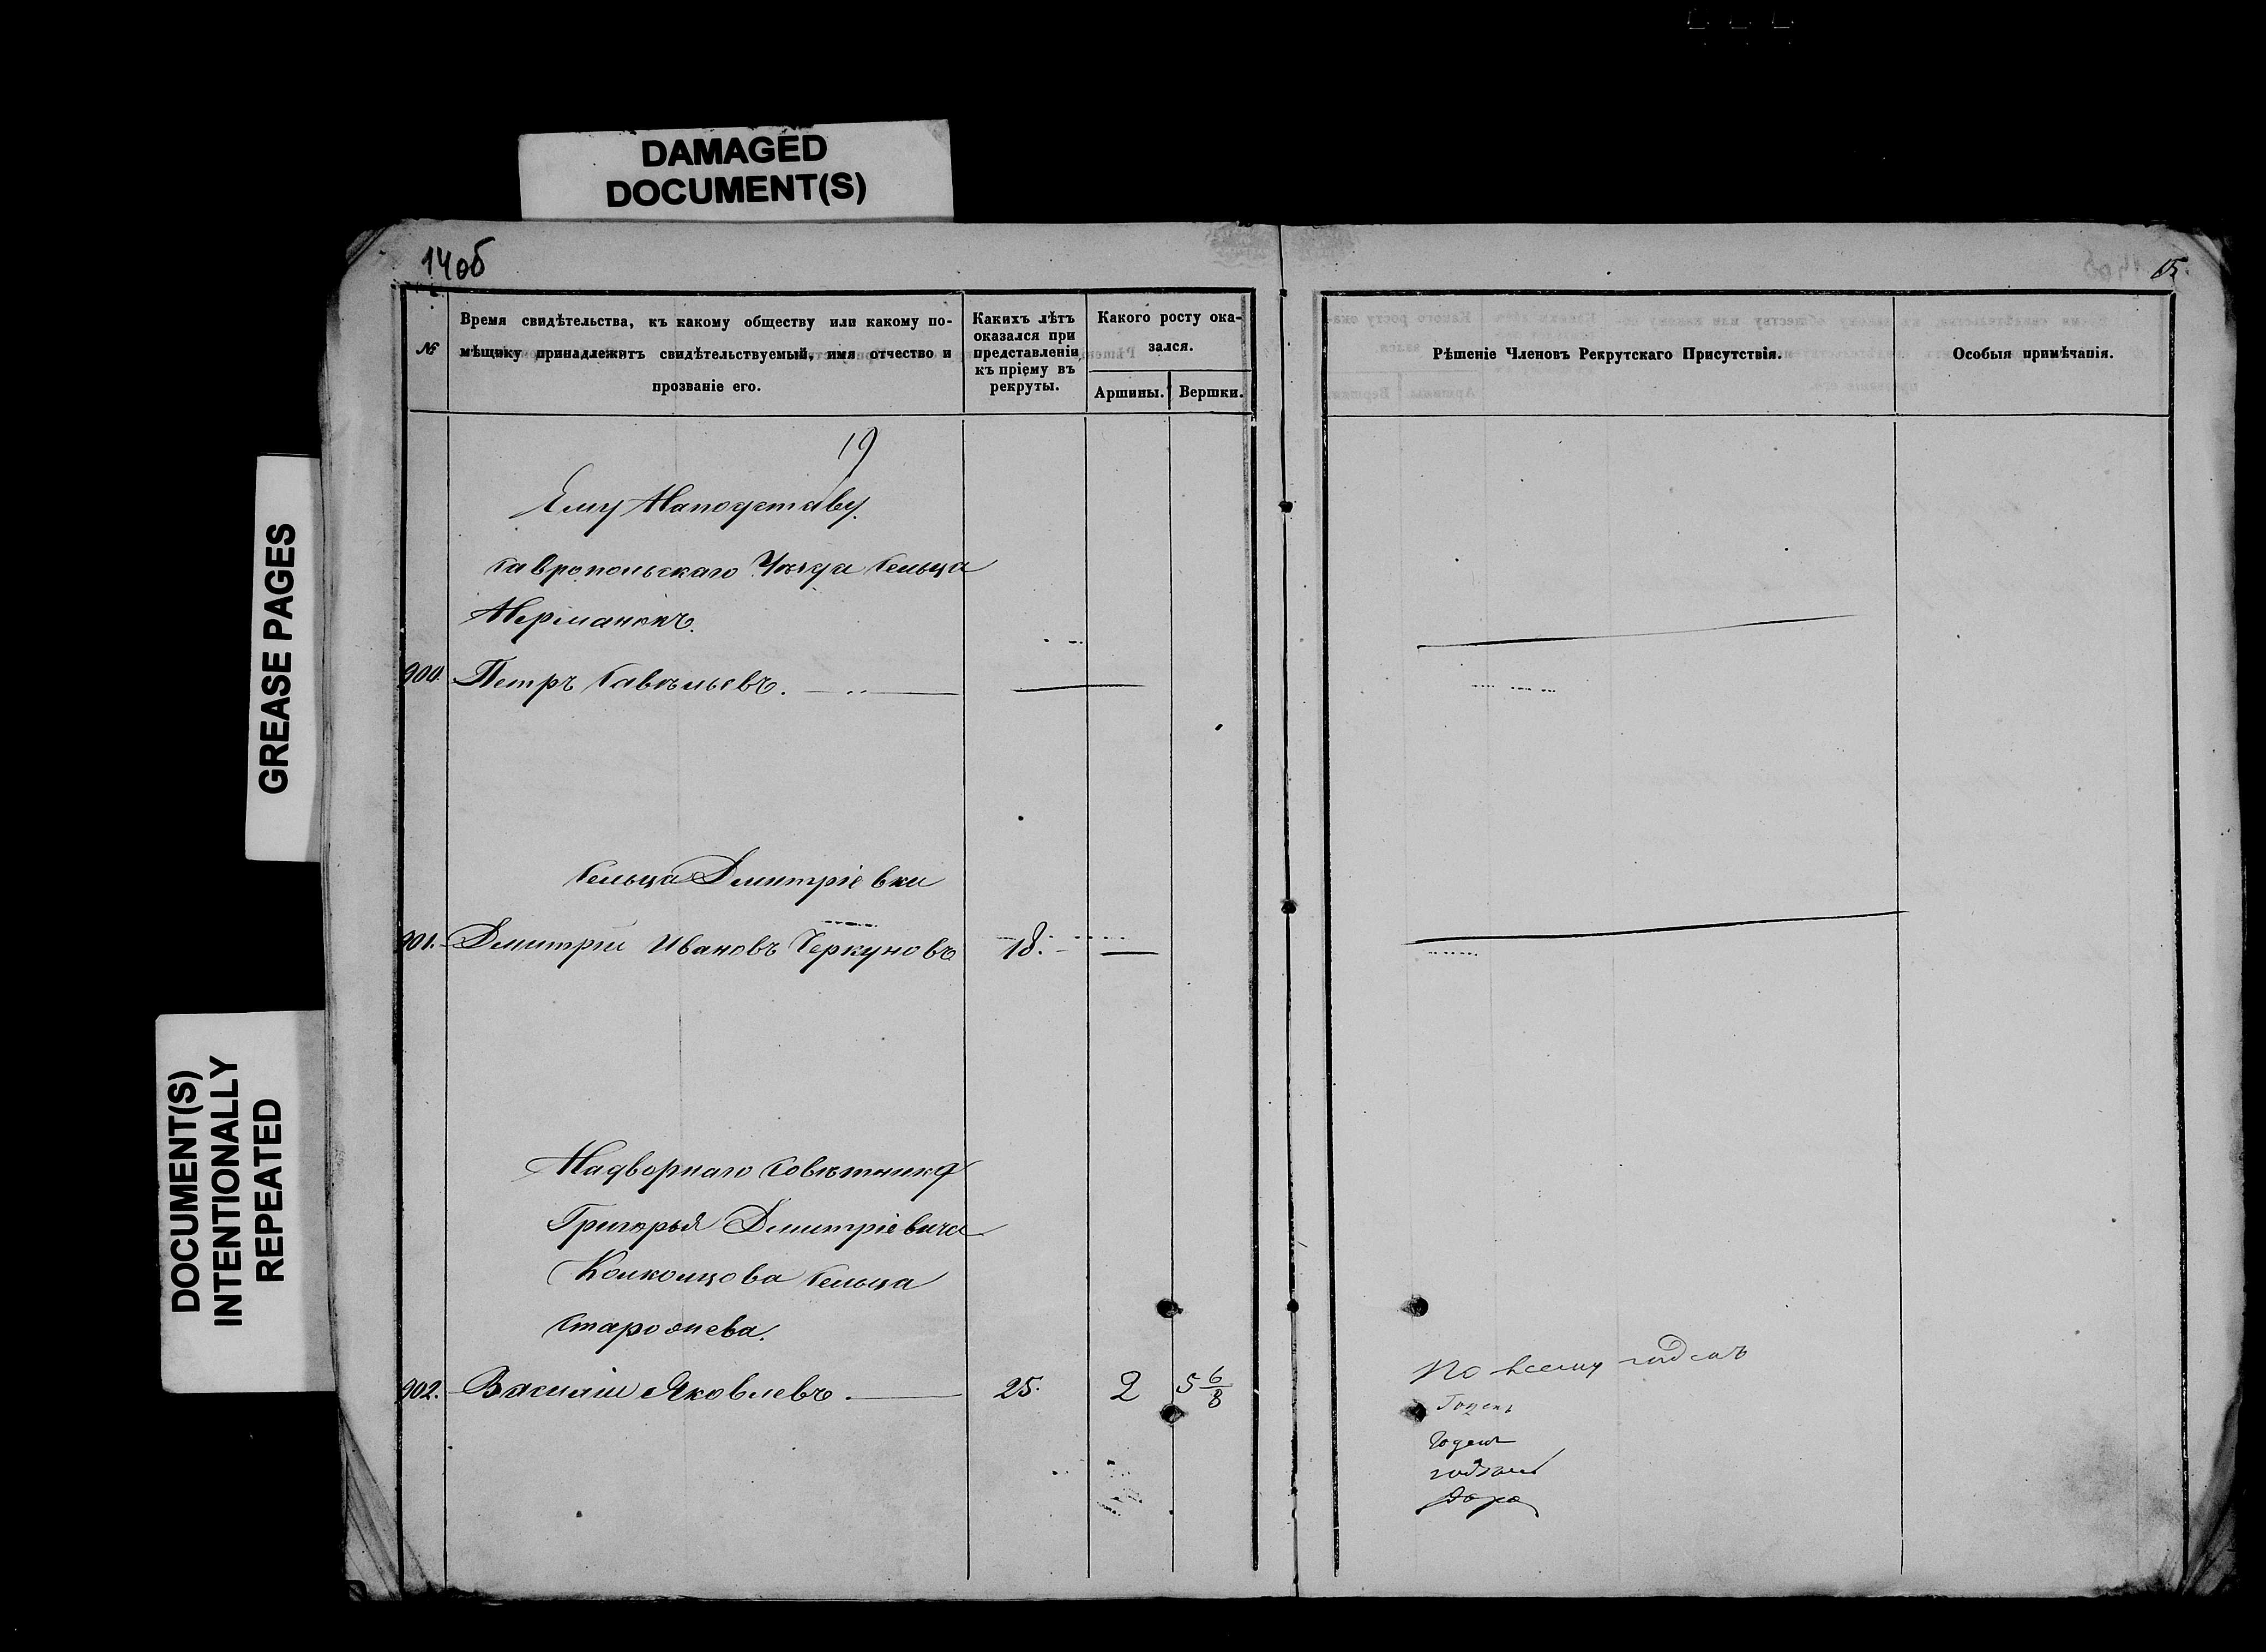 DAMAGED
DOCUMENT(S)
GREASE PAGES
DOCUMENT(S)
INTENTIONALLY
REPEATED
14 об
15
№
Время свидѣтельства, къ какому обществу или какому по-
мѣщику принадлежитъ свидѣтельствуемый, имя отчество и
прозваніе его.
Какихъ лѣтъ
оказался при
представленіи
къ пріему въ
рекруты.
Какого росту ока-
зался.
Аршины.
Вершки.
Рѣшеніе Членовъ Рекрутскаго Присутствія.
Особыя примѣчанія.
19
Ему
Ставропольскаго Уѣзда Сельца
900. Петръ Савельевъ.
Сельца Дмитріевки
901. Дмитрій Ивановъ 18.
Надворнаго Совѣтника
Григорья Дмитріевича
Сельца
902. Василій Яковлевъ. 25. 2 5 6/8
По всему годенъ
Годенъ
Годенъ
годенъ